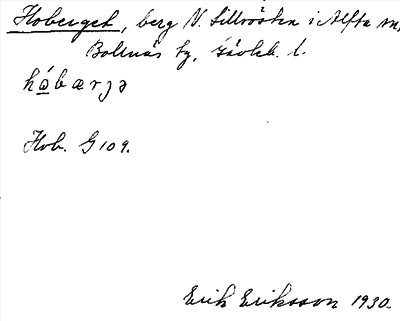 Hoberget, berg N. Sillvösten i Alfta sn,
Bollnäs tg, Gävleb. l.
hóbærjə
Hob. G 109.
Erik Eriksson 1930.